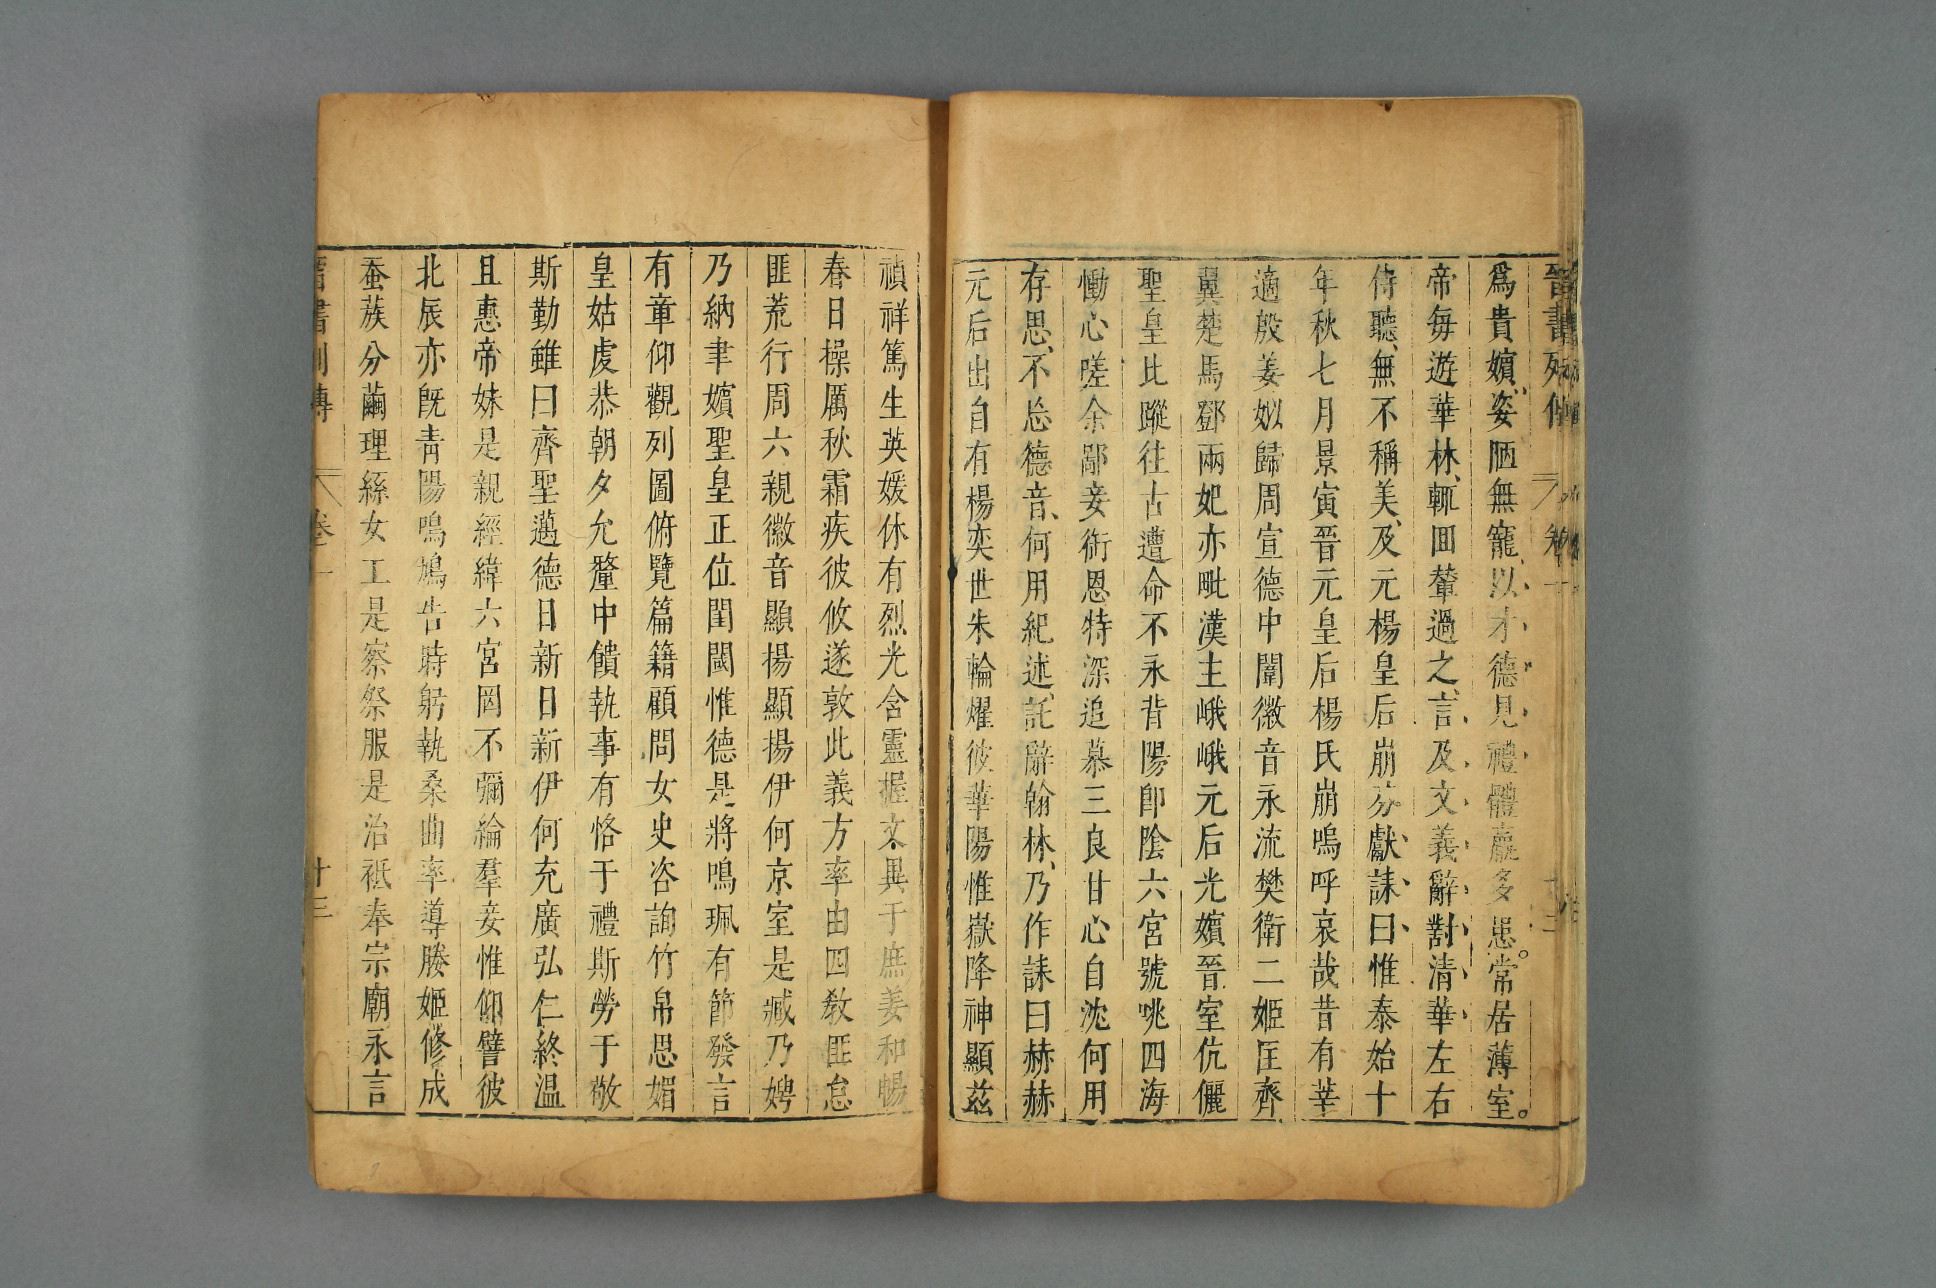 晉書列傳　卷一
爲貴嬪、姿陋無寵、以才德見禮體羸多患。常居薄室。
帝每遊華林、輒囬輦過之、言及文義辭對清華左右
侍聽、無不稱美、及元楊皇后崩芬獻、誄曰、惟泰始十
年秋七月景寅晉元皇后楊氏崩嗚呼哀哉昔有莘
適殷姜姒歸周宣德中闈徽音永流樊衛二姬匡齊
翼楚馬鄧兩妃亦毗漢主峨峨元后光嬪晉室伉儷
聖皇比蹤往古遭命不永背陽卽陰六宮號咷四海
慟心嗟余鄙妾銜恩特深追慕三良甘心自沈何用
存思、不忘德音、何用紀述、託辭翰林、乃作誄曰赫赫
元后出自有楊奕世朱輪燿彼華陽惟嶽降神顯茲
禎祥篤生英媛休有烈光含靈握文異于庶姜和暢
春日操厲秋霜疾彼攸遂敦此義方率由四敎匪怠
匪荒行周六親徽音顯揚顯揚伊何京室是臧乃娉
乃納聿嬪聖皇正位閨閾惟德是將鳴珮有節發言
有章仰觀列圖俯覽篇籍顧問女史咨詢竹帛思媚
皇姑虔恭朝夕允釐中饋執事有恪于禮斯勞于敬
斯勤雖曰齊聖邁德日新日新伊何充廣弘仁終温
且惠帝妹是親經緯六宮罔不彌綸羣妾惟仰譬彼
北辰亦旣靑陽鳴鳩告時躬執桑曲率導媵姬修成
蚕蔟分繭理絲女工是察祭服是治祗奉宗廟永言
晉書列傳　卷一　十三